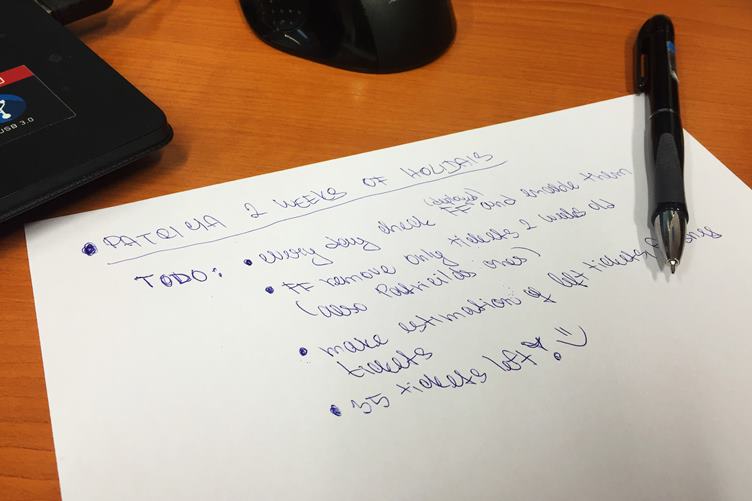 USB 3.0
PATRICIA 2 WEEKS OF HOLIDAIS
TODO:
every day check FF and enable them
FF remove only tickets 2 weeks old
(also Patricia's ones)
make estimation of left tickets
tickets
35 tickets left!